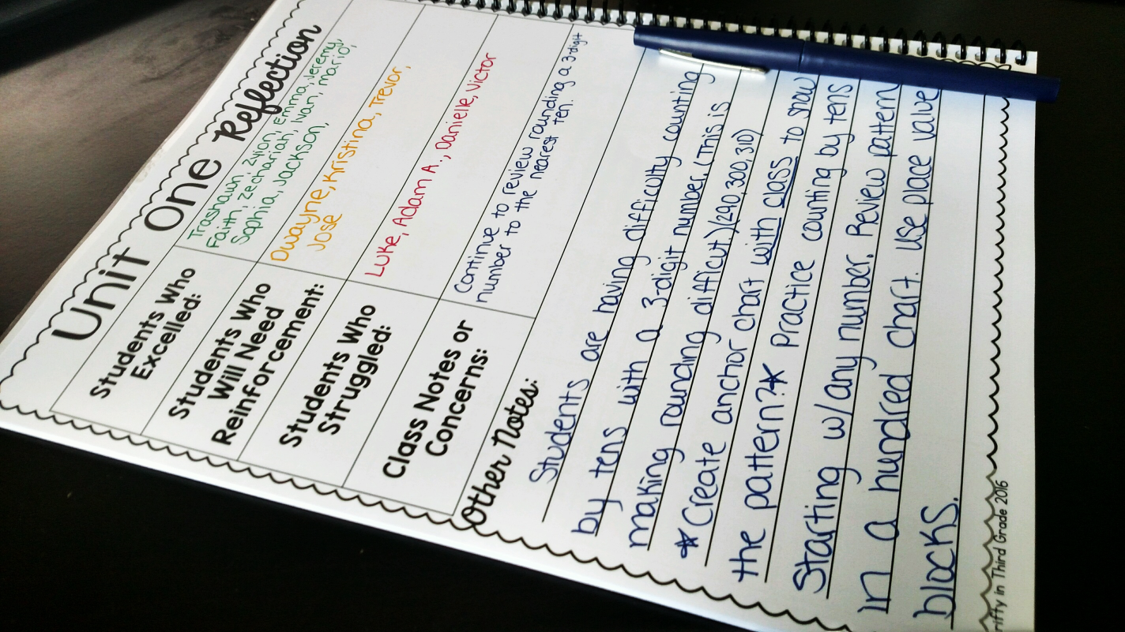 Unit One Reflection
Students Who
Excelled:
Trashaun, Zyion, Emma, Jeremy,
Faith, Zechariah, Ivan, Mario,
Sophia, Jackson,
Students Who
Will Need
Reinforcement:
Dwayne, Kristina, Trevor,
Jose
Students Who
Struggled:
Luke, Adam A., Danielle, Victor
Class Notes or
Concerns:
Continue to review rounding a 3-digit
number to the nearest ten.
Other Notes:
Students are having difficulty counting
by tens with a 3-digit number. (This is
making rounding difficut) (290, 300, 310)
*Create anchor chart with class to show
the pattern?* Practice counting by tens
starting w/any number. Review pattern
in a hundred chart. Use place value
blocks.
in Third Grade 2016